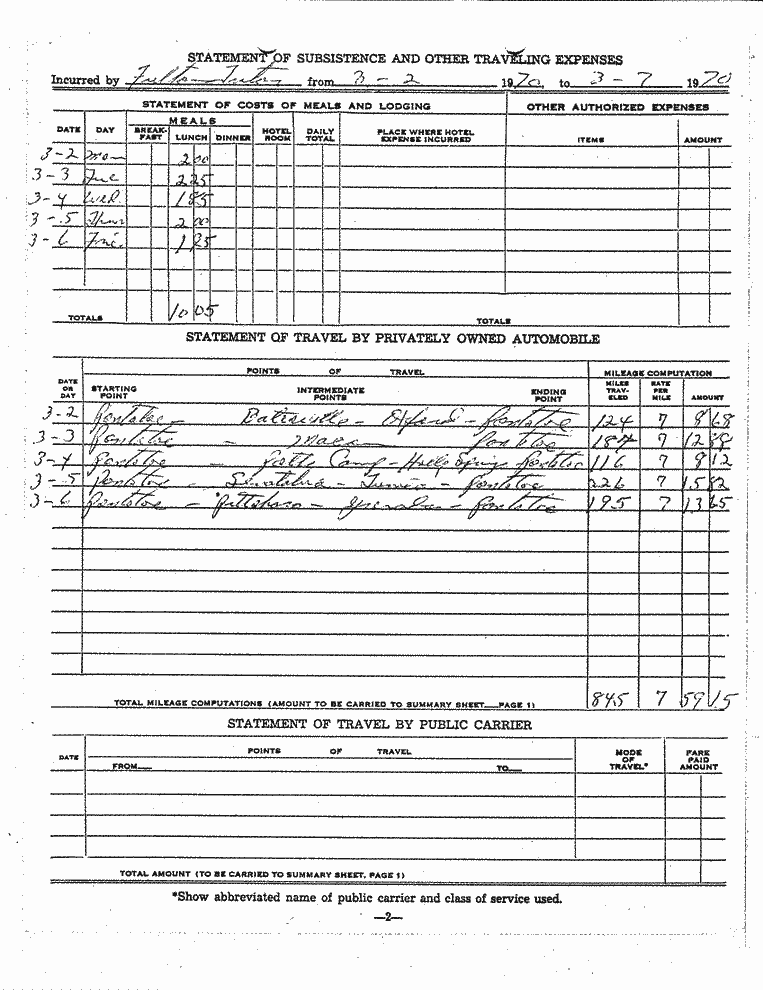 STATEMENT OF SUBSISTENCE AND OTHER TRAVELING EXPENSES
Incurred by Fulton Tutor from 3 - 2 1970, to 3 - 7 1970
STATEMENT OF COSTS OF MEALS AND LODGING OTHER AUTHORIZED EXPENSES
MEALS
DATE DAY BREAK-FAST LUNCH DINNER HOTEL ROOM DAILY TOTAL PLACE WHERE HOTEL EXPENSE INCURRED ITEMS AMOUNT
3-2 Mon 2 00
3-3 Tue 2 25
3-4 Wed. 1 85
3-5 Thur 2 00
3-6 Fri.
TOTALS 10 05 TOTALS
STATEMENT OF TRAVEL BY PRIVATELY OWNED AUTOMOBILE
DATE OR DAY POINTS OF TRAVEL MILEAGE COMPUTATION
STARTING POINT INTERMEDIATE POINTS ENDING POINT MILES TRAV-ELED RATE PER MILE AMOUNT
3-2 Pontotoc - Batesville - Oxford - Pontotoc 124 7 8 68
3-3 Pontotoc - Macon Pontotoc 184 7 12 88
3-4 Pontotoc - Camp - Holly Springs Pontotoc 116 7 8 12
3-5 Pontotoc - Senatobia - Tunica - Pontotoc 226 7 15 82
3-6 Pontotoc - Pittsboro - - Pontotoc 195 7 13 65
TOTAL MILEAGE COMPUTATIONS (AMOUNT TO BE CARRIED TO SUMMARY SHEET—PAGE 1) 845 7 59 15
STATEMENT OF TRAVEL BY PUBLIC CARRIER
DATE POINTS OF TRAVEL MODE OF TRAVEL* FARE PAID AMOUNT
FROM— TO—
TOTAL AMOUNT (TO BE CARRIED TO SUMMARY SHEET, PAGE 1)
*Show abbreviated name of public carrier and class of service used.
—2—